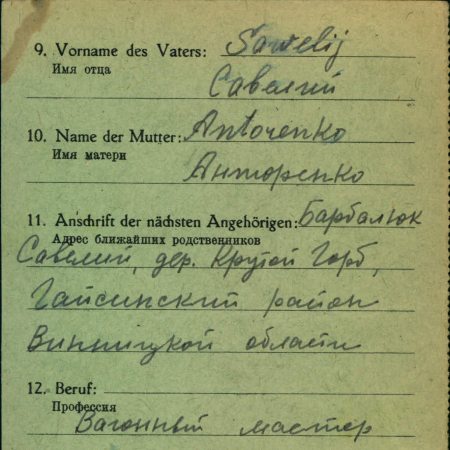 9. Vorname des Vaters: Sawelij
Имя отца
Савелий
10. Name der Mutter: Antorenko
Имя матери
Анторенко
11. Anschrift der nächsten Angehörigen: Барбалюк
Адрес ближайших родственников
Савелий, дер. Крутой Горб,
Гайсинский район
Винницкой области
12. Beruf:
Профессия
Вагонный мастер